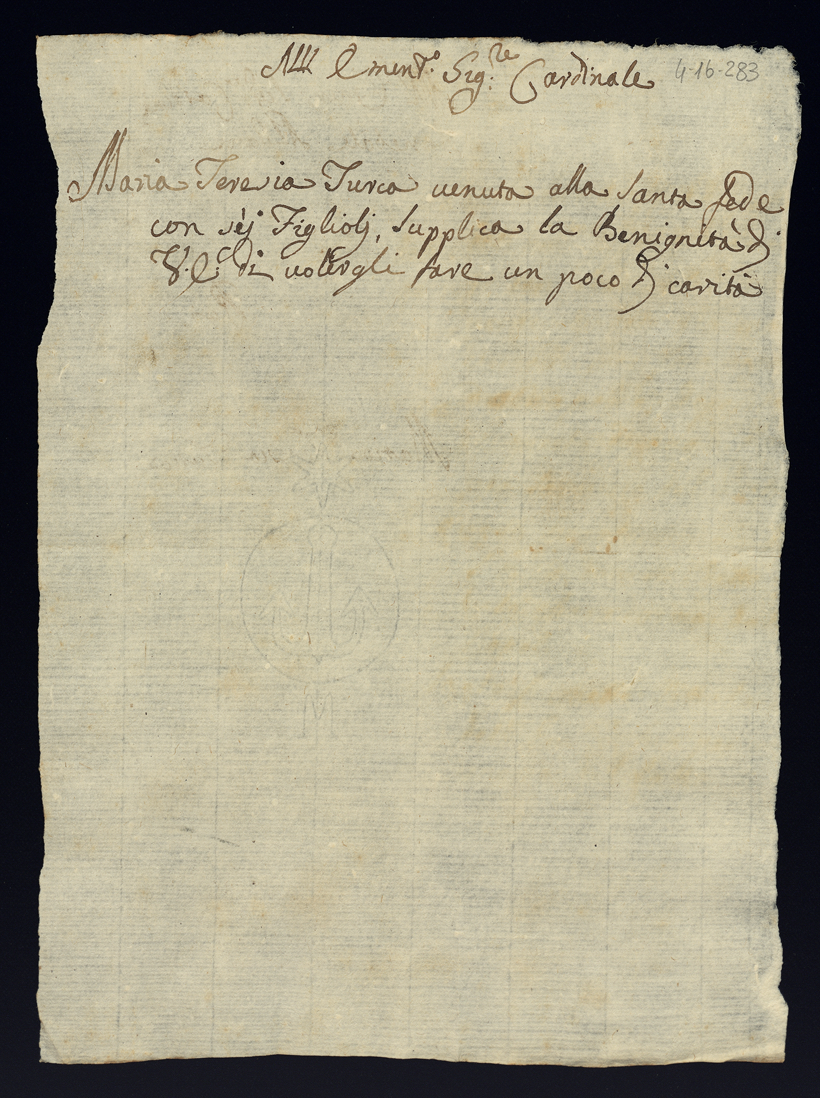 All' Ement.º Sig.re Cardinale 4-16-283
Maria Teresia Turca uenuta alla Santa fede
con sèj Figliolj, Supplica la Benignità dj
V. E. di uolergli fare un poco dj carità
M